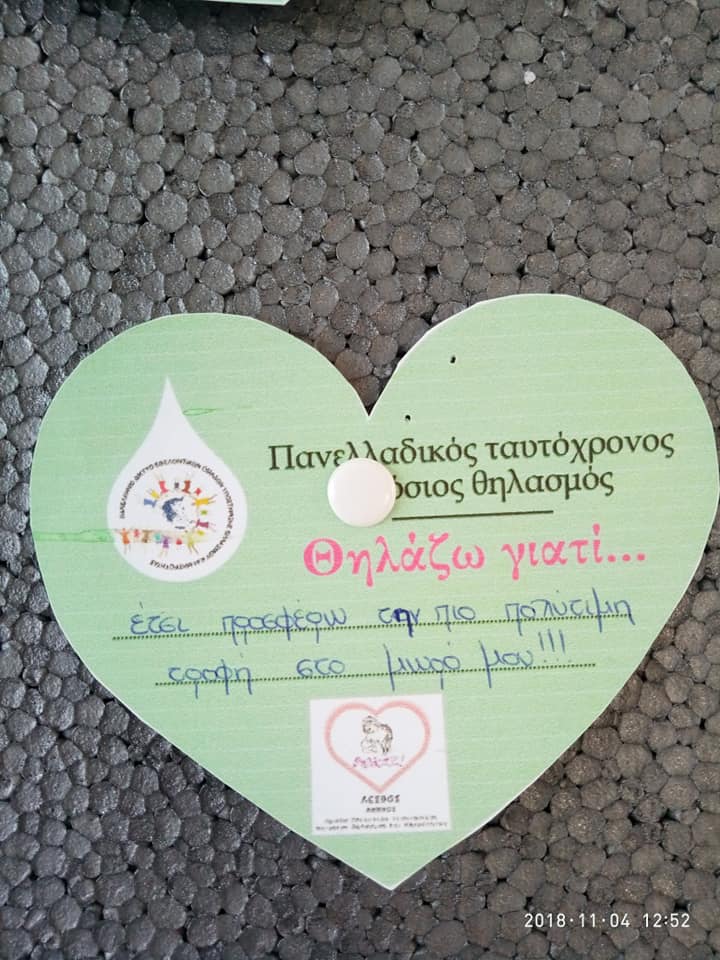 Πανελλαδικός ταυτόχρονος
όσιος θηλασμός
Θηλάζω γιατί...
έτσι προσφέρω την πιο πολύτιμη
τροφή στο μικρό μου!!!
ΛΕΣΒΟΣ
2018·11·04 12:52